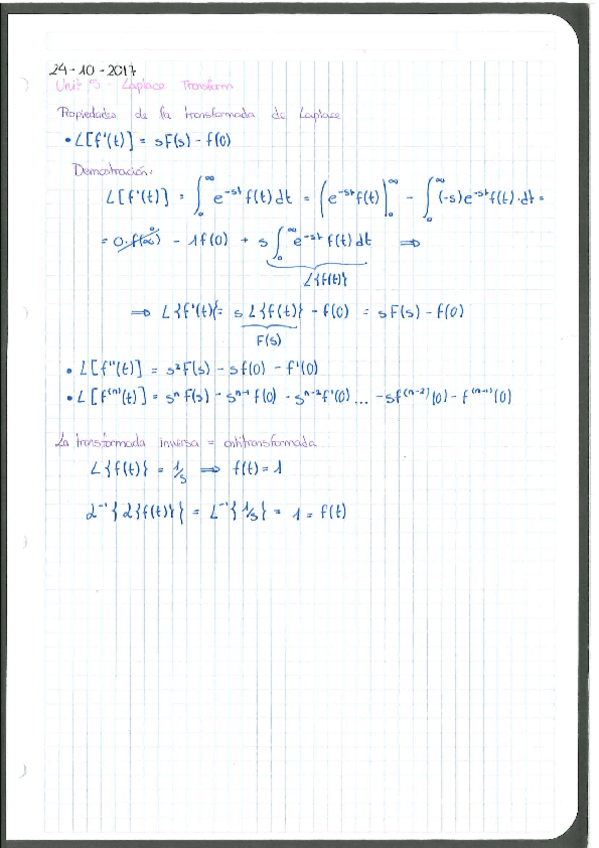 24-10-2017
Unit 5 - Laplace Transform
Propiedades de la transformada de Laplace
• L[f'(t)] = sF(s) - f(0)
Demostración:
L[f'(t)] = ∫₀^∞ e^(-st) f(t) dt = (e^(-st) f(t)]₀^∞ - ∫₀^∞ (-s)e^(-st) f(t)·dt =
= 0·f(∞) - 1f(0) + s ∫₀^∞ e^(-st) f(t) dt ⇒
L{f(t)}
⇒ L{f'(t)} = s L{f(t)} - f(0) = sF(s) - f(0)
F(s)
• L[f''(t)] = s²F(s) - sf(0) - f'(0)
• L[f⁽ⁿ⁾(t)] = sⁿF(s) - sⁿ⁻¹f(0) - sⁿ⁻²f'(0) ... - sf⁽ⁿ⁻²⁾(0) - f⁽ⁿ⁻¹⁾(0)
La transformada inversa = antitransformada
L{f(t)} = 1/s ⇒ f(t) = 1
L⁻¹{L{f(t)}} = L⁻¹{1/s} = 1 = f(t)